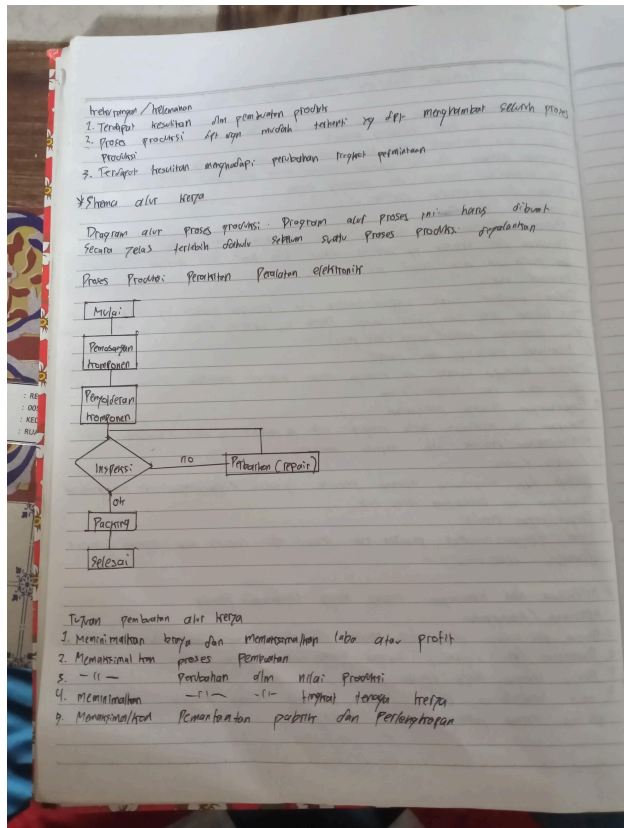 kekurangan/kelemahan
1. Terdapat kesulitan dlm pembuatan produk
2. Proses produksi dpt dgn mudah terhenti yg dpt menghambat seluruh proses
Produksi
3. Terdapat kesulitan menghadapi perubahan tingkat permintaan
*Skema alur kerja
Diagram alur proses produksi. Diagram alur proses ini harus dibuat
Secara jelas terlebih dahulu sebelum suatu proses produksi dijalankan
Proses Produksi Perakitan Peralatan elektronik
Mulai
Pemasangan
komponen
Penyolderan
komponen
Inspeksi
no
Perbaikan (repair)
Ok
Packing
Selesai
Tujuan pembuatan alur kerja
1. Meminimalkan biaya dan memaksimalkan laba atau profit
2. Memaksimalkan proses pembuatan
3. -11- Perubahan dlm nilai Produksi
4. Meminimalkan -11- -11- tingkat tenaga kerja
5. Memaksimalkan Pemanfaatan pabrik dan Perlengkapan
: RE
: 005
: KED
: RUA